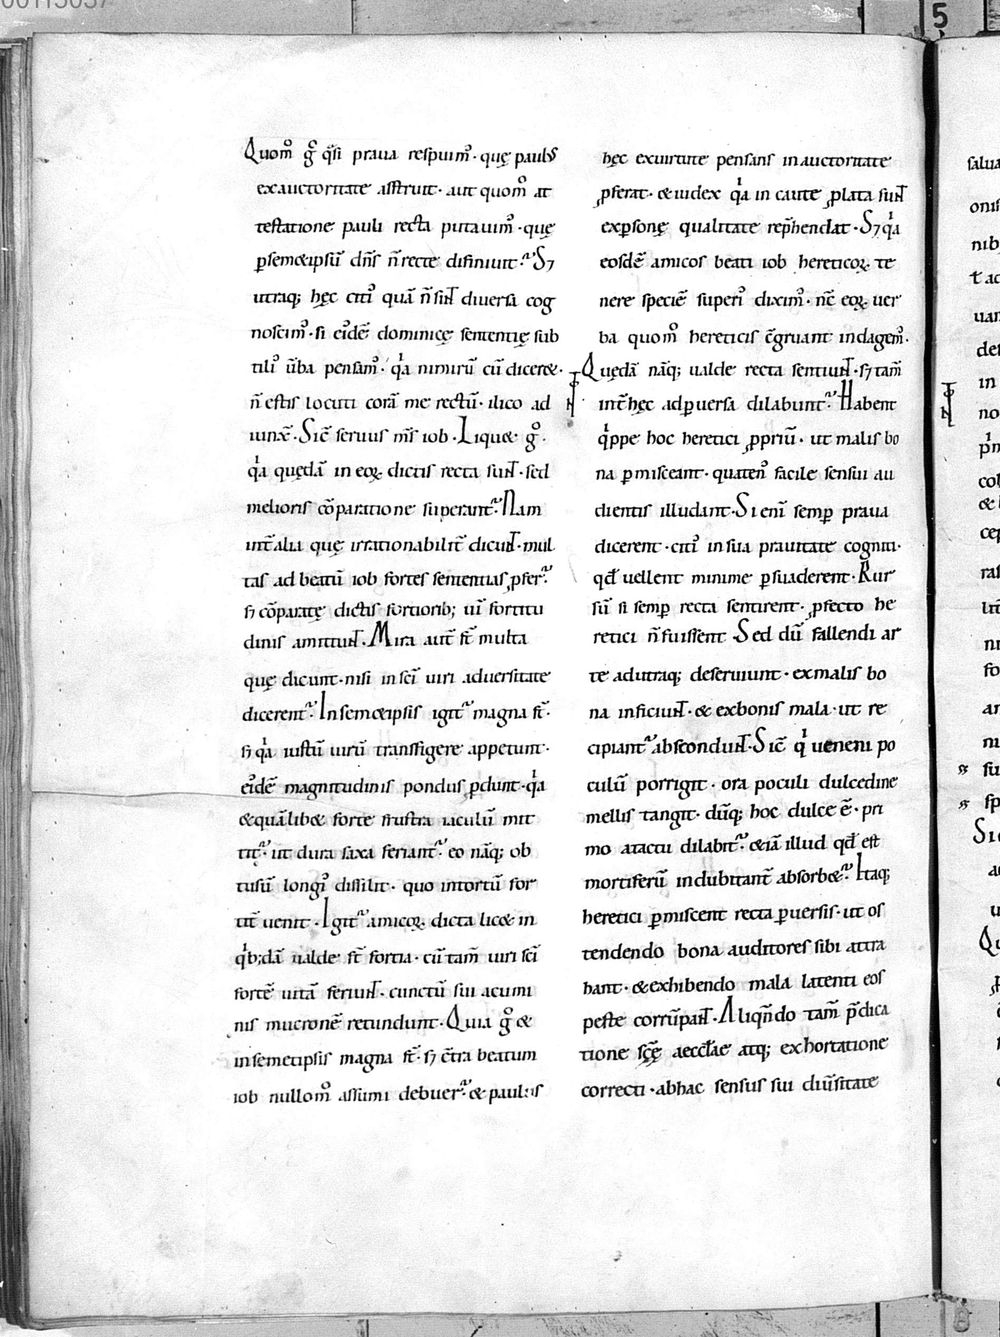 00115037
5
Quom̊ g̊ q̊si praua respuim᷒ · quę paulus
ex auctoritate astruit · aut quom̊ at
testatione pauli recta putauim᷒ · quę
ꝑ semet ipsū dn̄s n̄ recte difiniuit · S;
utraq; hęc citi᷒ quā n̄ sint diuersa cog
noscim᷒ · si ei᷒dē dominicę sententię sub
tili᷒ ūba pensam᷒ · qͥa nimirū cū diceret ·
n̄ estis locuti corā me rectū · ilico ad
iunx̄ · Sic̄ seruus m̄s iob · Liquet g̊ ·
qͥa quędā in eoꝝ dictis recta sunt · sed
melioris cōparatione superant᷑ · Nam
int̄ alia quę irrationabilit̄ dicunt · mul
tas ad beatū iob fortes sententias ꝓfer᷑
s; cōparatę dictis fortiorib; uī fortitu
dinis amittunt · Mira aut̄ st̄ multa
quę dicunt · nisi in sc̄i uiri aduersitate
dicerent᷑ · In semet ipsis igit᷑ magna st̄ ·
s; qͥa iustū uirū transfigere appetunt ·
ei᷒dē magnitudinis pondus ꝑdunt · qͥa
& quālibet forte frustra iaculū mit
tit᷑ · ut dura saxa feriant᷑ · eo nāq; ob
tusū longi᷒ dissilit · quo intortū for
tit̄ uenit · Igit᷑ amicoꝝ dicta licet in
qͥb;dā ualde st̄ fortia · cū tam̄ uiri sc̄i
fortē uitā feriunt · cunctū sui acumi
nis mucronē retundunt · Quia g̊ &
in semetipsis magna st̄ · s; c̄tra beatum
iob nullom̊ assumi debuer᷑ · & paulus
hęc ex uirtute pensans in auctoritate
ꝓferat · & iudex qͥa in caute ꝓlata sunt
ex ꝑsonę qualitate rep̄hendat · S; qͥa
eosdē amicos beati iob hereticoꝝ te
nere speciē superi᷒ dixim᷒ · nc̄ eoꝝ uer
ba quom̊ hereticis c̄gruant indagem᷒ ·
Quędā nāq; ualde recta sentiunt · s; tam̄
int̄ hęc ad ꝑuersa dilabunt᷑ · Habent
qͥppe hoc heretici ꝓpriū · ut malis bo
na ꝑmisceant · quaten᷒ facile sensui au
dientis illudant · Si enī semꝑ praua
dicerent · citi᷒ in sua prauitate cogniti ·
qd̄ uellent minime ꝑsuaderent · Rur
sū si semꝑ recta sentirent · ꝓfecto he
retici n̄ fuissent · Sed dū fallendi ar
te ad utraq; deseruiunt · ex malis bo
na inficiunt · & ex bonis mala · ut re
cipiant᷑ abscondunt · Sic̄ qͥ ueneni po
culū porrigit · ora poculi dulcedine
mellis tangit · dūq; hoc dulce ē · pri
mo a tactu dilabit᷑ · & iā illud qd̄ est
mortiferū indubitant̄ absorbet᷑ · Itaq;
heretici ꝑmiscent recta ꝑuersis · ut os
tendendo bona auditores sibi attra
hant · & exhibendo mala latenti eos
peste corrūpant · Aliqn̄do tam̄ p̄dica
tione sc̄ę aecclae atq; exhortatione
correcti · ab hac sensus sui diūsitate